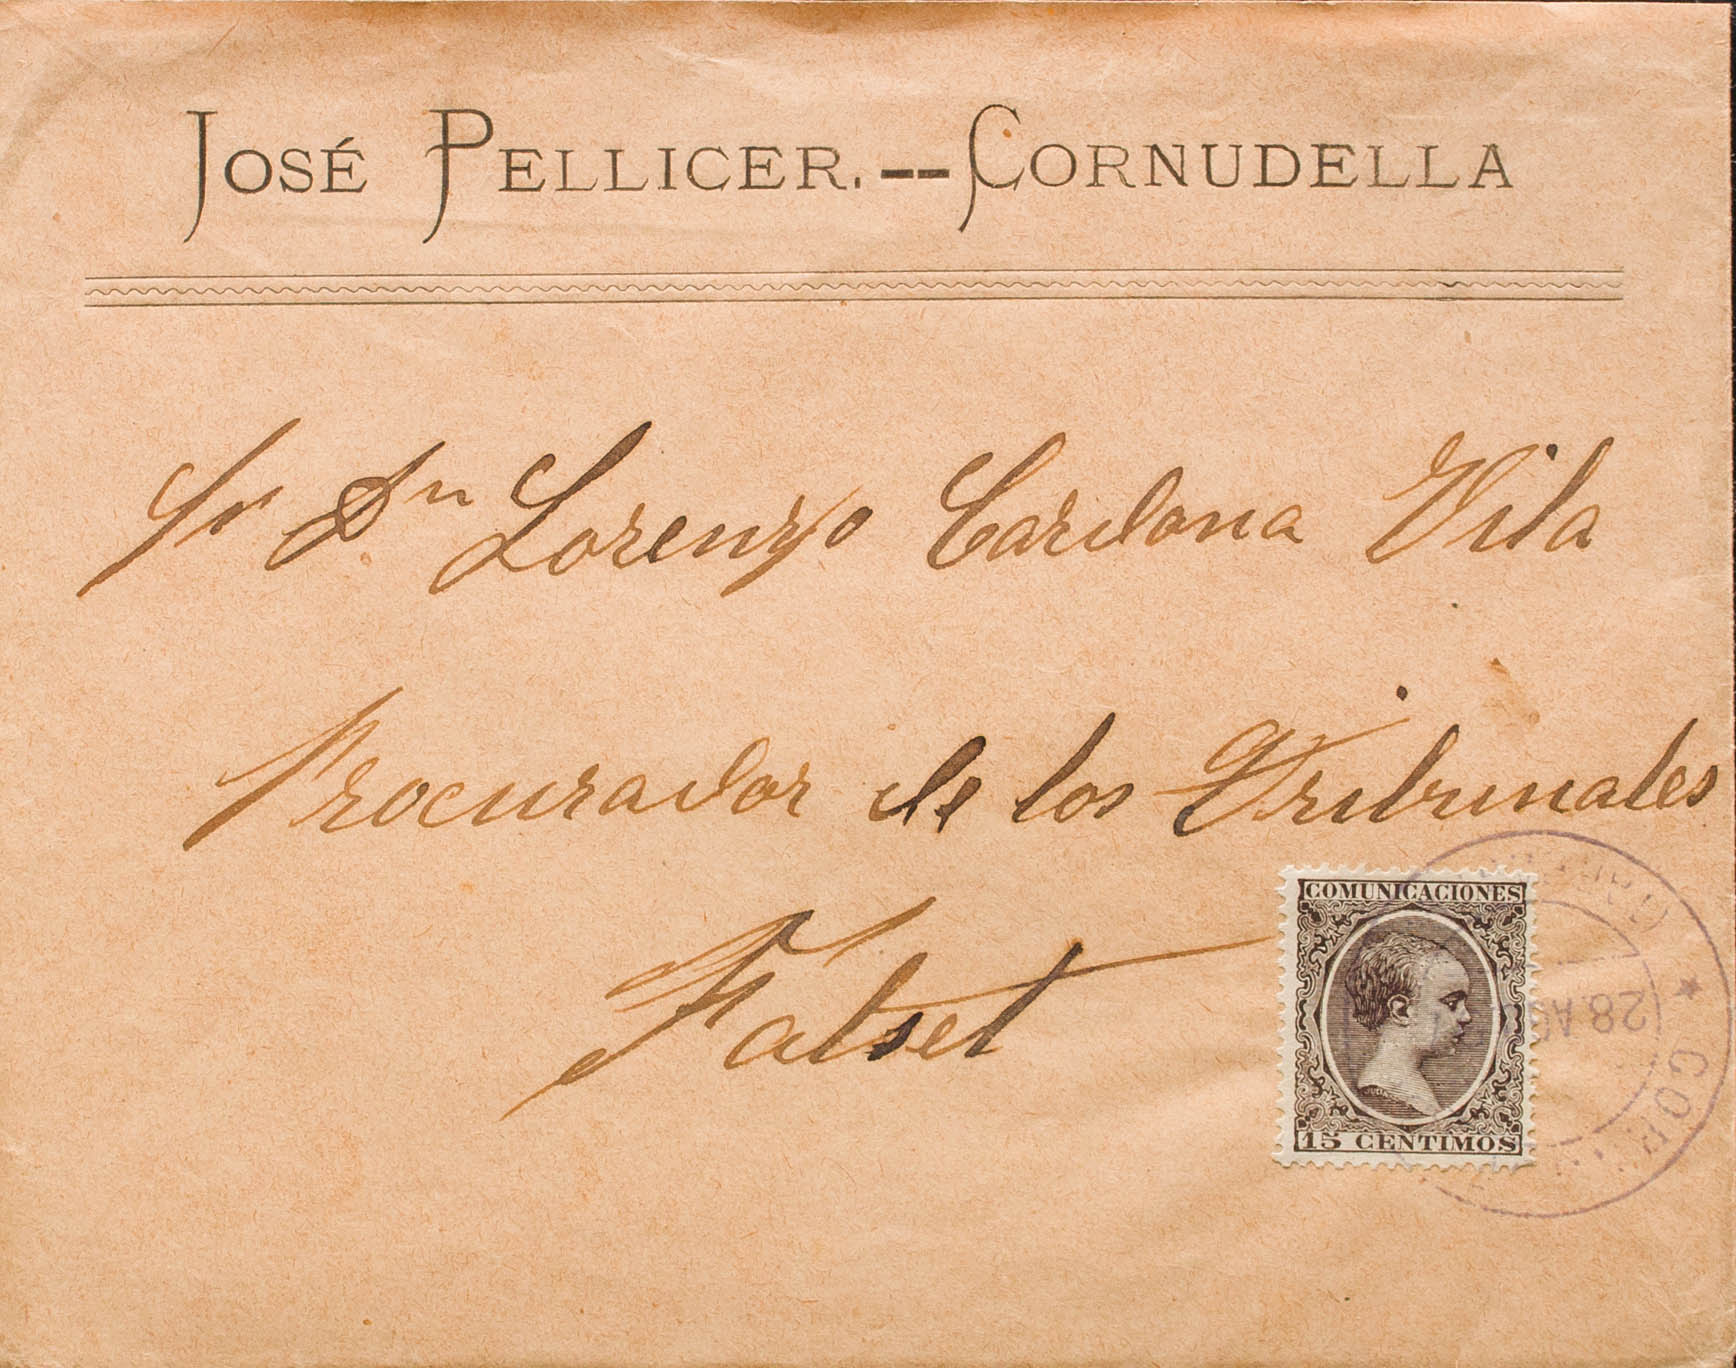 JOSÉ PELLICER. -- CORNUDELLA
Sr Dn Lorenzo Cardona Vila
Procurador de los Tribunales
Falset
COMUNICACIONES
15 CENTIMOS
28 AG
COR